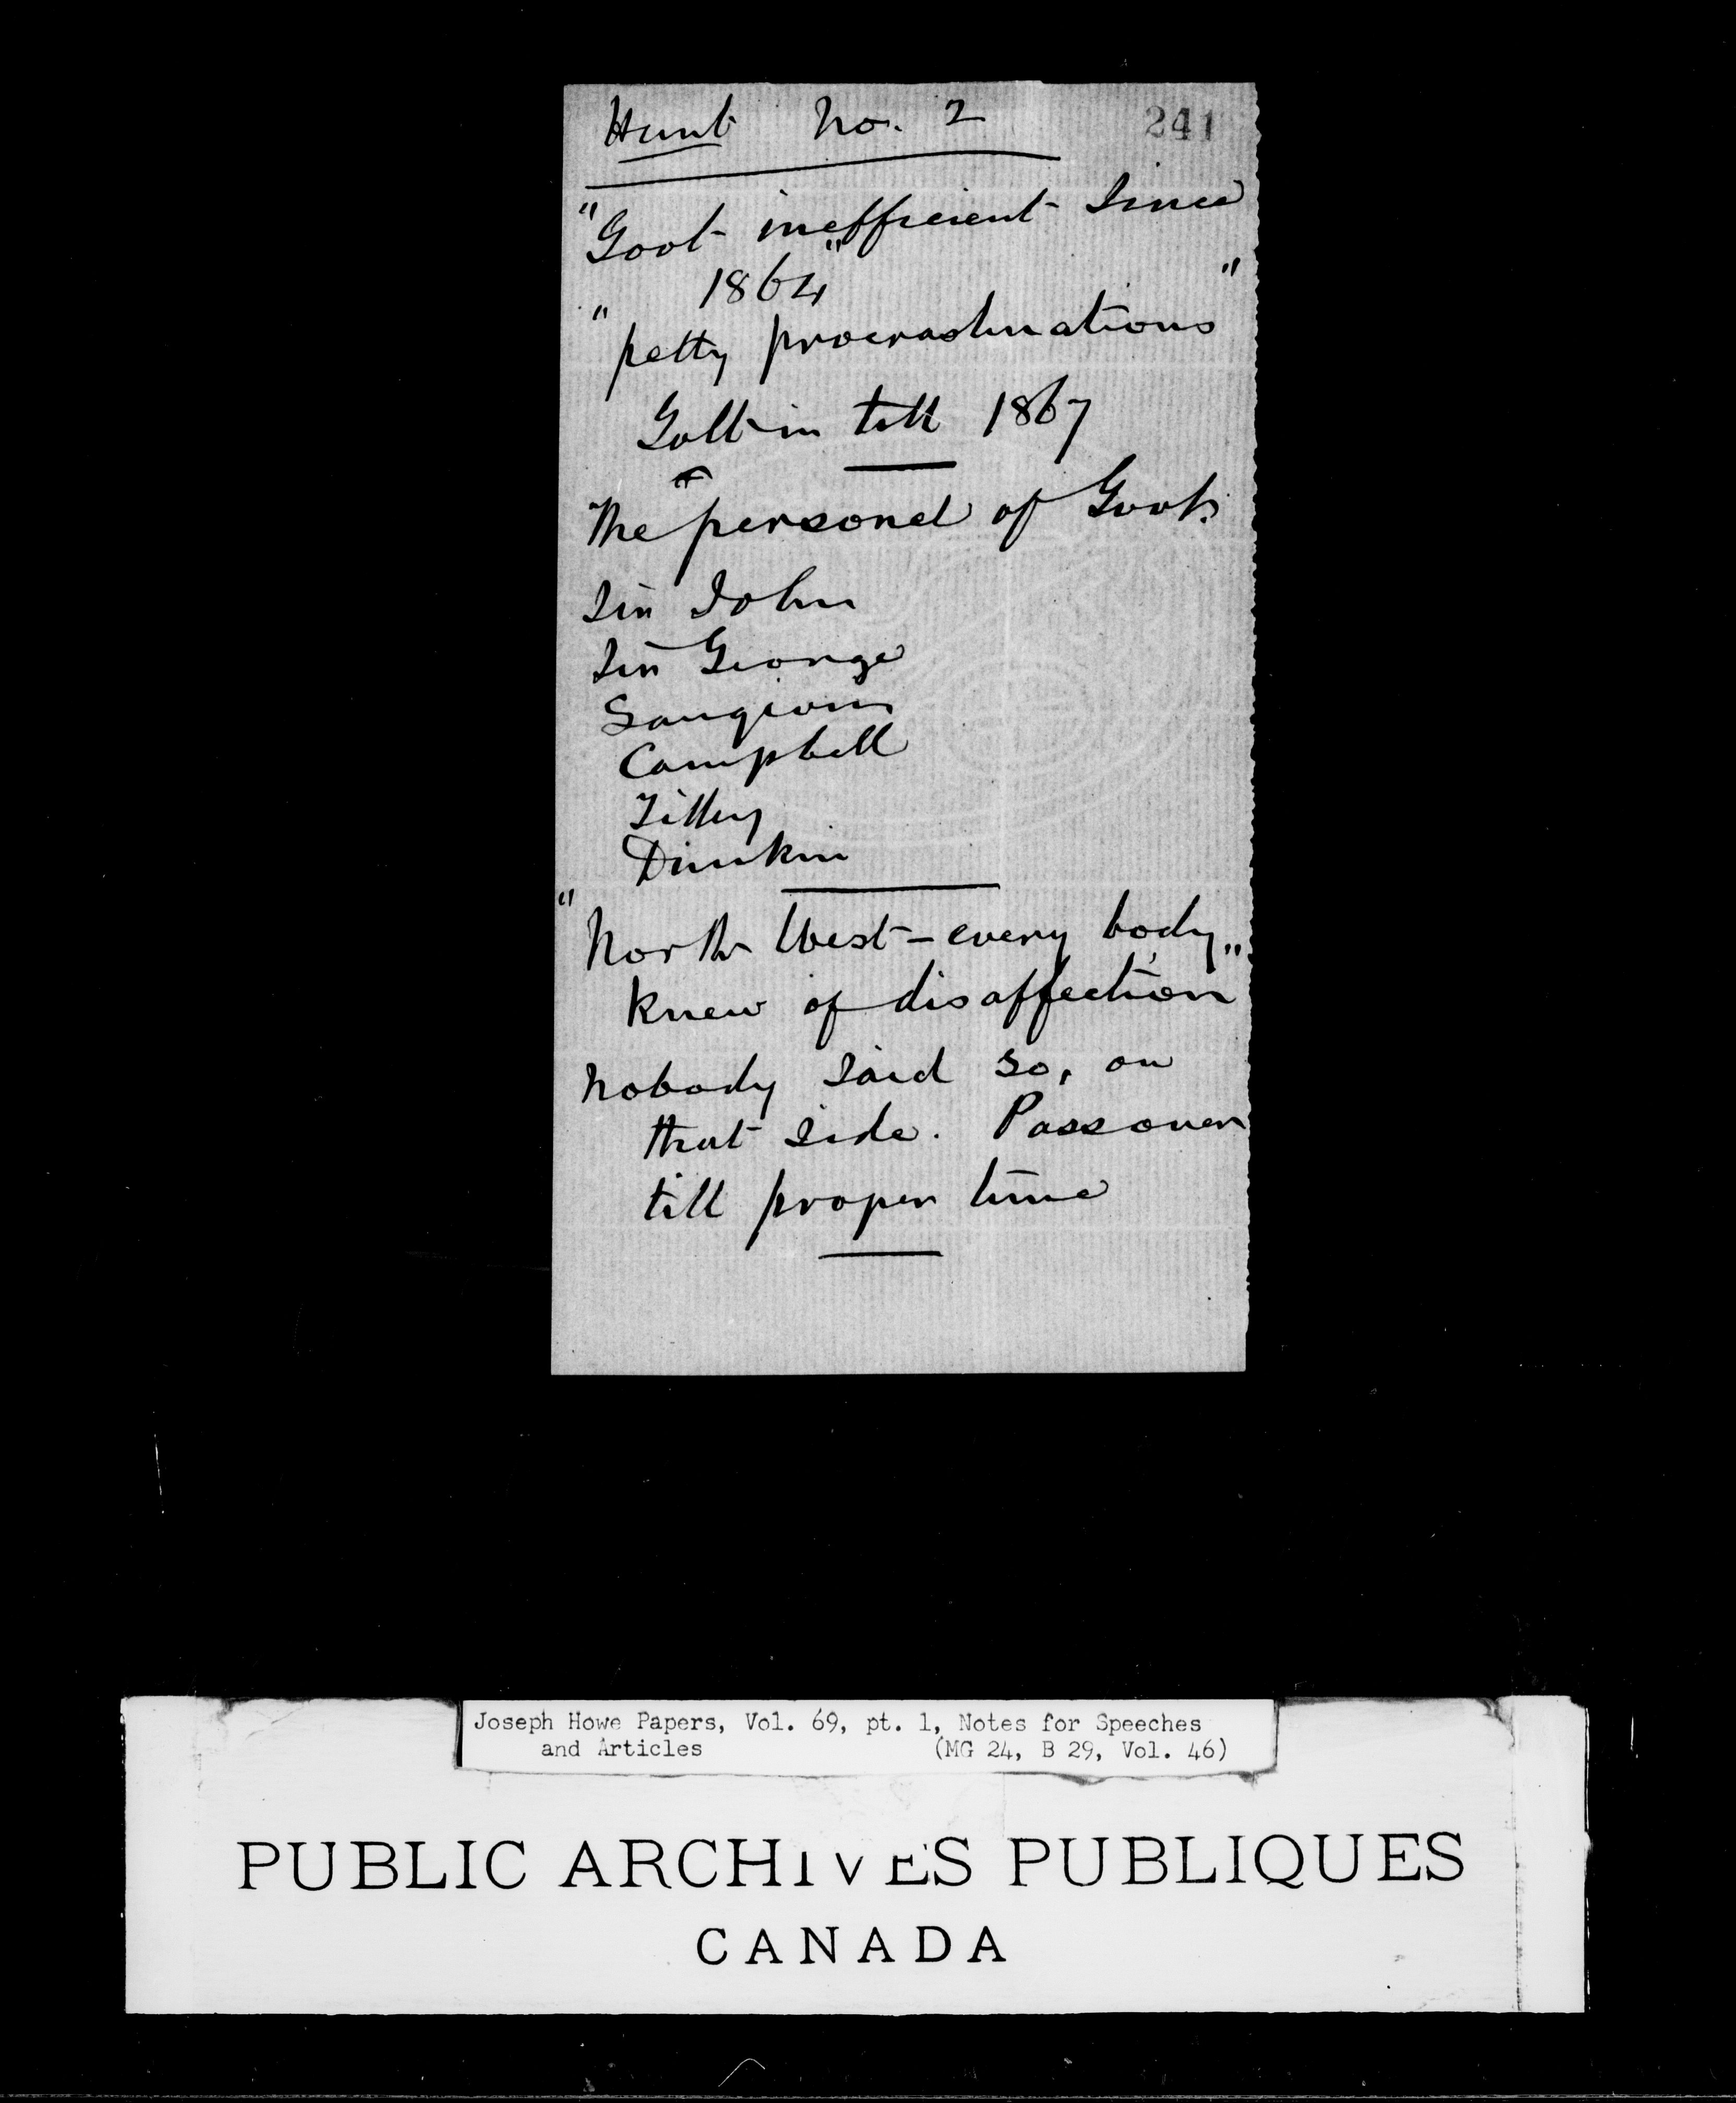 Hunt No. 2
241
"Govt inefficient Since
1864"
"petty procrastinations"
Galt in till 1867
The "personel of Govt.
Sir John
Sir George
Langevin
Campbell
Tilley
Dunkin
"North West - every body
knew of disaffection"
Nobody said so, on
that side. Pass over
till proper time
Joseph Howe Papers, Vol. 69, pt. 1, Notes for Speeches
and Articles (MG 24, B 29, Vol. 46)
PUBLIC ARCHIVES PUBLIQUES
CANADA